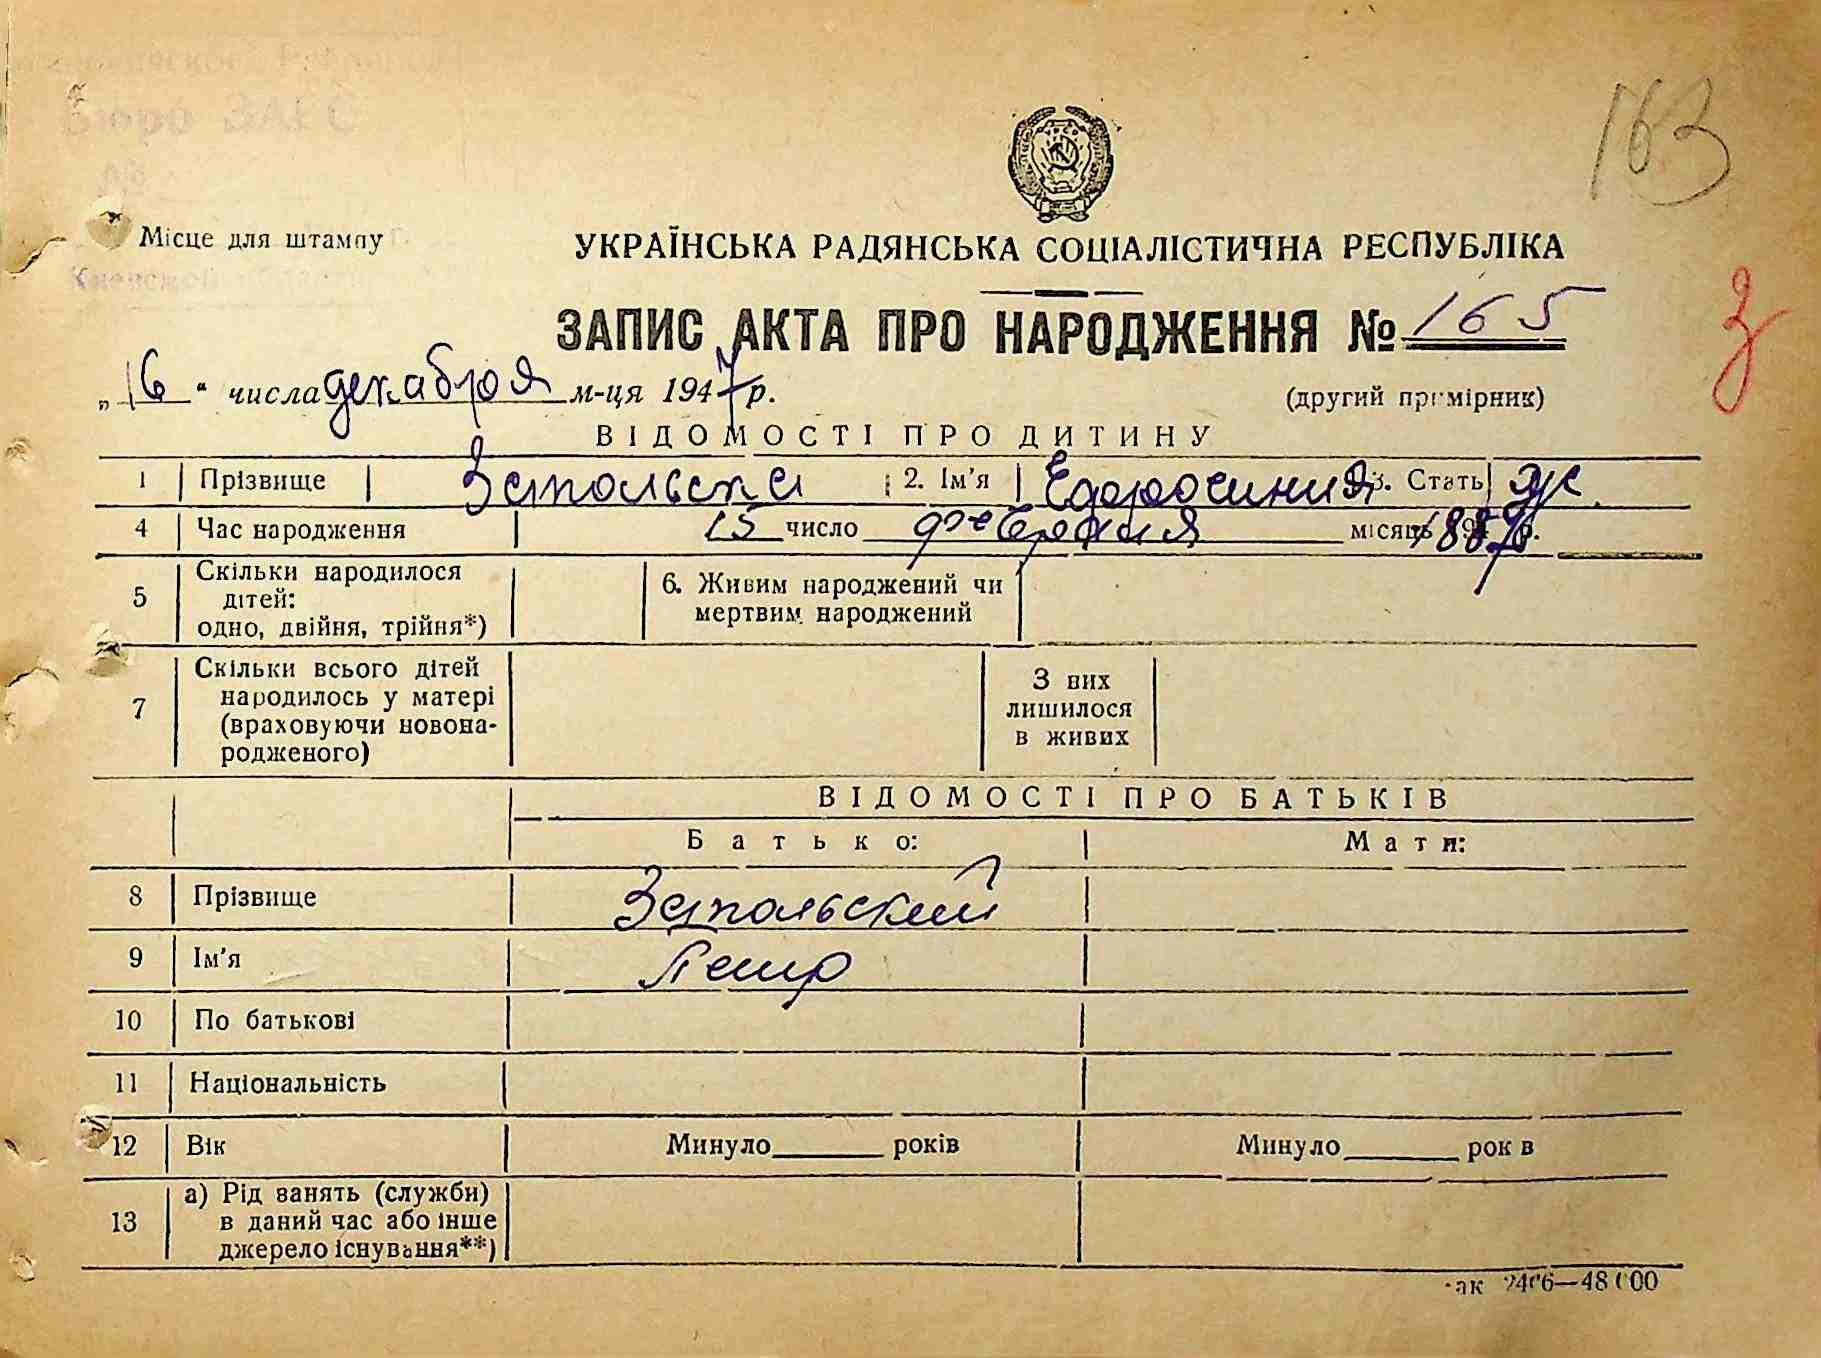 Бюро ЗАГС
163
Місце для штампу
Киевской области
УКРАЇНСЬКА РАДЯНСЬКА СОЦІАЛІСТИЧНА РЕСПУБЛІКА
ЗАПИС АКТА ПРО НАРОДЖЕННЯ № 165
З
„16“ числа декабря м-ця 1947 р.
(другий примірник)
ВІДОМОСТІ ПРО ДИТИНУ
1 Прізвище Запольска 2. Ім'я 3. Стать ж.
4 Час народження 15 число февраля місяць 1887 р.
5 Скільки народилося дітей: одно, двійня, трійня*) 6. Живим народжений чи мертвим народжений
7 Скільки всього дітей народилось у матері (враховуючи новонародженого) З них лишилося в живих
ВІДОМОСТІ ПРО БАТЬКІВ
Батько: Мати:
8 Прізвище Запольский
9 Ім'я Петр
10 По батькові
11 Національність
12 Вік Минуло років Минуло рок в
13 а) Рід занять (служби) в даний час або інше джерело існування**)